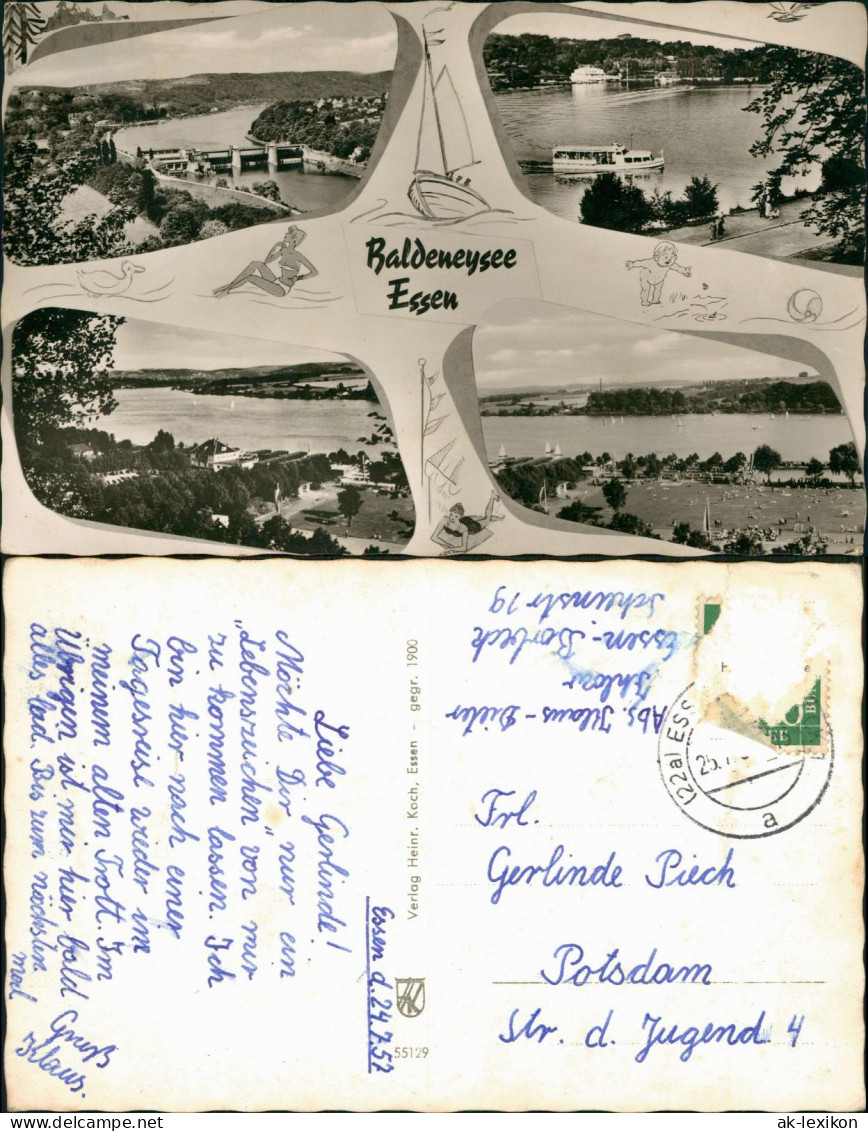 Baldeneysee
Essen
Essen d. 24.7.57
Liebe Gerlinde!
Möchte Dir nur ein
„Lebenszeichen" von mir
zu kommen lassen. Ich
bin hier nach einer
Tagesreise wieder im
meinem alten Trott. Im
Übrigen ist mir hier bald
alles leid. Bis zum nächsten
mal Gruß
Klaus.
Verlag Heinr. Koch, Essen - gegr. 1900
55129
Abs. Klaus-Dieter
Essen-Borbeck
19
(22a) ESS
25.
a
Frl.
Gerlinde Piech
Potsdam
Str. d. Jugend 4
ak-lexikon